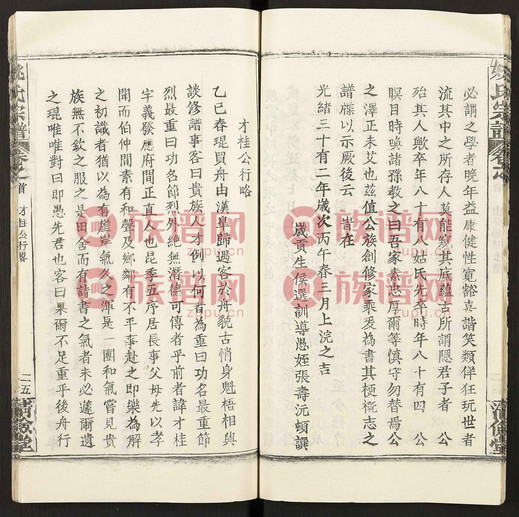 姚氏宗譜
必謂之學者晚年益康健性寬豁喜諧笑類佯狂玩世者
流其中之所存人莫能窺其底蘊古所謂隱君子者 公
殆其人歟卒年八十有八姑氏先卒時年八十有四 公
瞑目時喚諸孫教之曰吾家素忠厚爾等慎守勿替焉 公
之澤正未艾也茲值公族創修家乘爰為書其梗概志之
譜以示厥後云 譜在
光緒三十有二年歲次丙午春三月上浣之吉
歲貢生候選訓導愚姪張壽沅頓撰
才桂公行略
乙巳春琨買舟由漢皋歸遇客於舟貌古悄身魁梧相與
談修譜事客曰貴族 才例以何者為重曰功名最重節
烈最重曰功名節烈外絕無潛德可傳者乎前者諱才桂
字義發應府間正直人也昆季五序居長事父母先以孝
聞而伯仲間素有和聲及鄉鄰有不平事赴之即樂為解
之初識者猶以為有雄雄氣久之渾是一團和氣嘗見貴
族無不欽之服之是田舍而有詩書之氣者未必遽爾遺
之琨唯唯對曰即愚先君也客曰果爾不足重乎後舟行
姚氏宗譜
卷之首
才桂公行略
二五